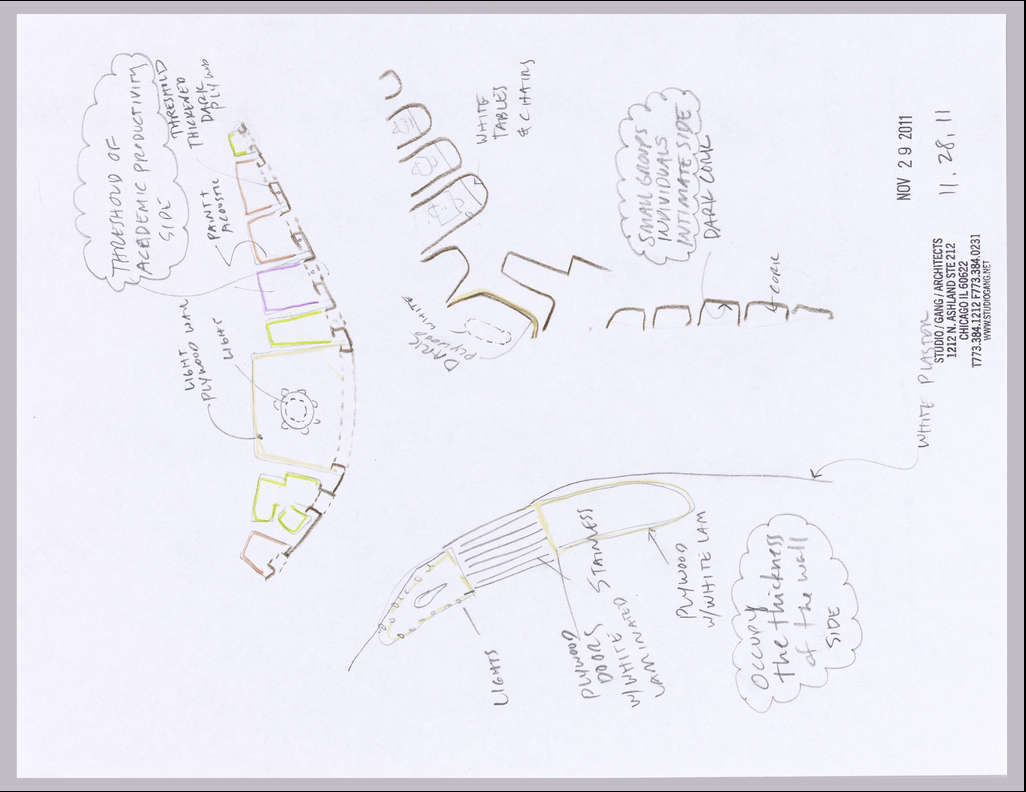 THRESHOLD OF
ACADEMIC PRODUCTIVITY
SIDE
THRESHOLD
THICKENED
DARK
PLYWD
PAINT?
ACOUSTIC
LIGHT
LIGHT
PLYWOOD WALL
WHITE
TABLES
& CHAIRS
DARK
PLYWOOD
WHITE
SMALL GROUPS
INDIVIDUALS
INTIMATE SIDE
DARK CORK
CORK
NOV 29 2011
11.28.11
STUDIO / GANG / ARCHITECTS
1212 N. ASHLAND STE 212
CHICAGO IL 60622
T773.384.1212 F773.384.0231
WWW.STUDIOGANG.NET
WHITE PLASTER
LIGHTS
PLYWOOD
DOORS
W/WHITE
LAMINATED
STAINLESS
PLYWOOD
W/WHITE LAM
OCCUPY
the thickness
of the wall
SIDE